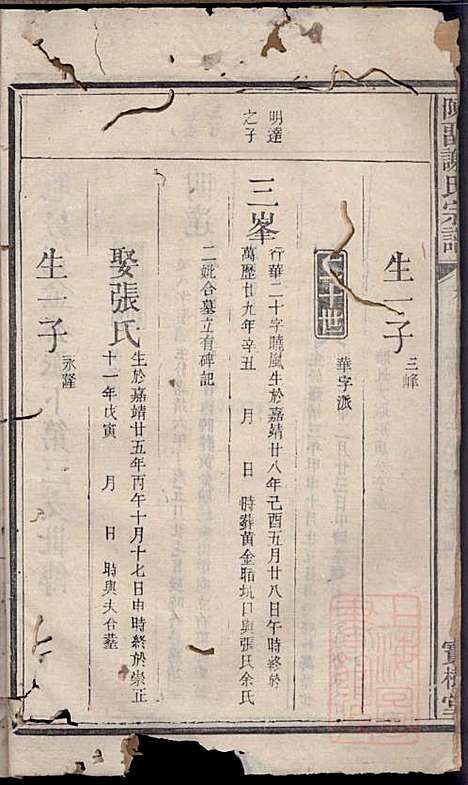 謝氏宗譜
寶樹堂
生一子
三峰
世
華字派
明達
之子
三峯
行華二十字曉嵐生於嘉靖廿八年己酉五月廿八日午時終於
萬歷廿九年辛丑 月 日 時葬黃金 坑口與張氏余氏
二妣合墓立有碑記
娶張氏
生於嘉靖廿五年丙午十月十七日申時終於崇正
十一年戊寅 月 日 時與夫合墓
生一子
永隆